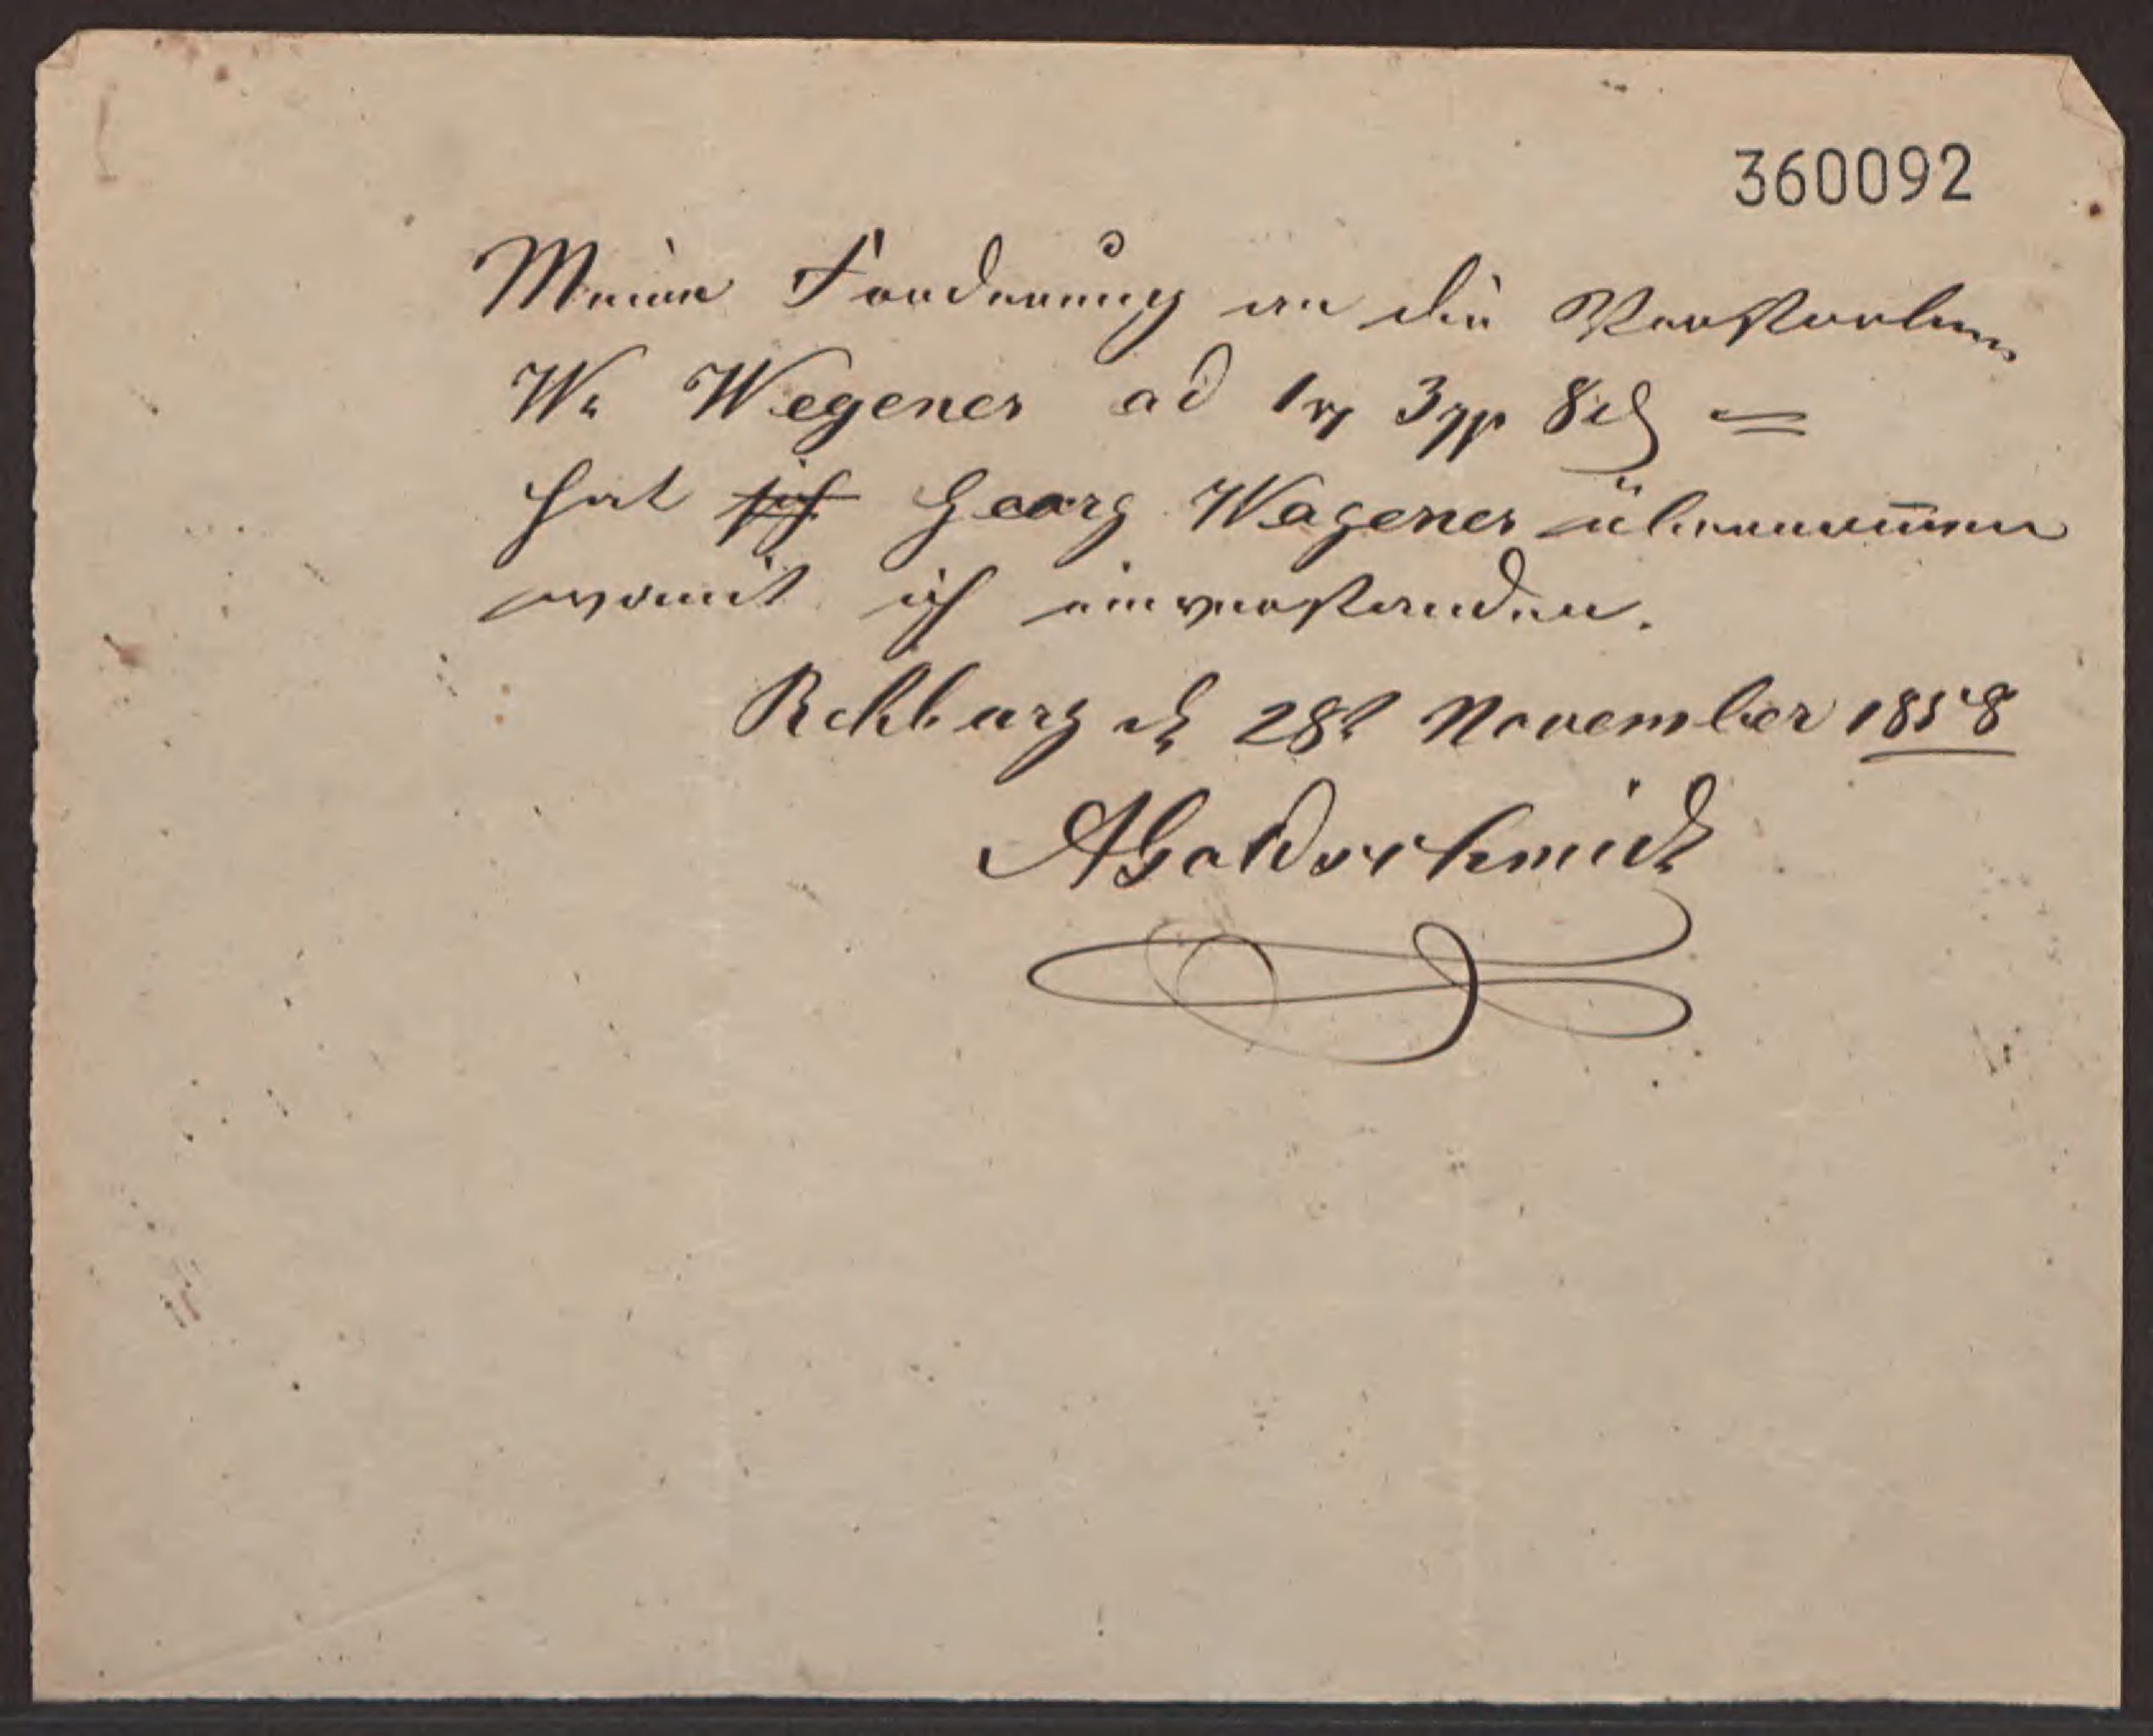 360092
Meine Forderung an die Verstorbene
We Wegener ad 1 rℓ 3 ggr 8 ₰ =
hat sich Georg Wegener übernommen
womit ich einverstanden.
Rehburg d 28t November 1858
AGoldschmidt